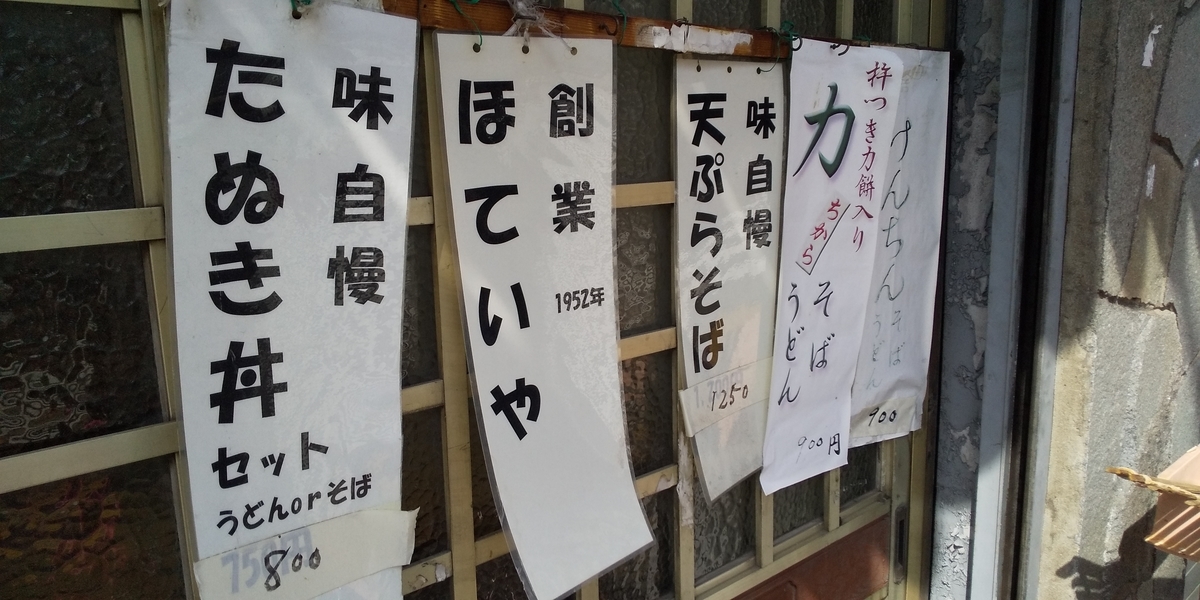 味自慢
たぬき丼
セット
うどんorそば
800
創業 1952年
ほていや
味自慢
天ぷらそば
1250
杵つき力餅入り
力
ちから
そば
うどん
900円
けんちんそば
うどん
900